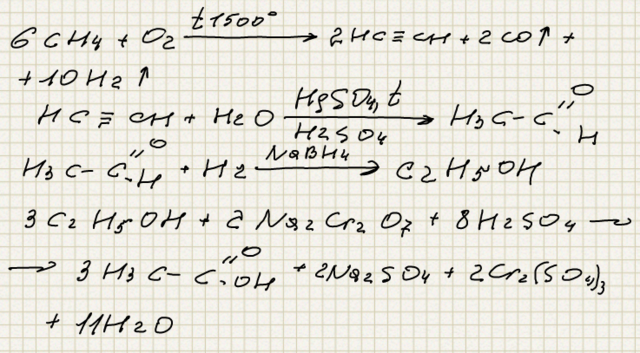 6 CH4 + O2 t 1500° → 2HC≡CH + 2CO↑ +
+ 10H2↑
HC≡CH + H2O HgSO4, t / H2SO4 → H3C-C(=O)-H
H3C-C(=O)-H + H2 NaBH4 → C2H5OH
3 C2H5OH + 2 Na2Cr2O7 + 8H2SO4 →
→ 3 H3C-C(=O)-OH + 2Na2SO4 + 2Cr2(SO4)3
+ 11H2O